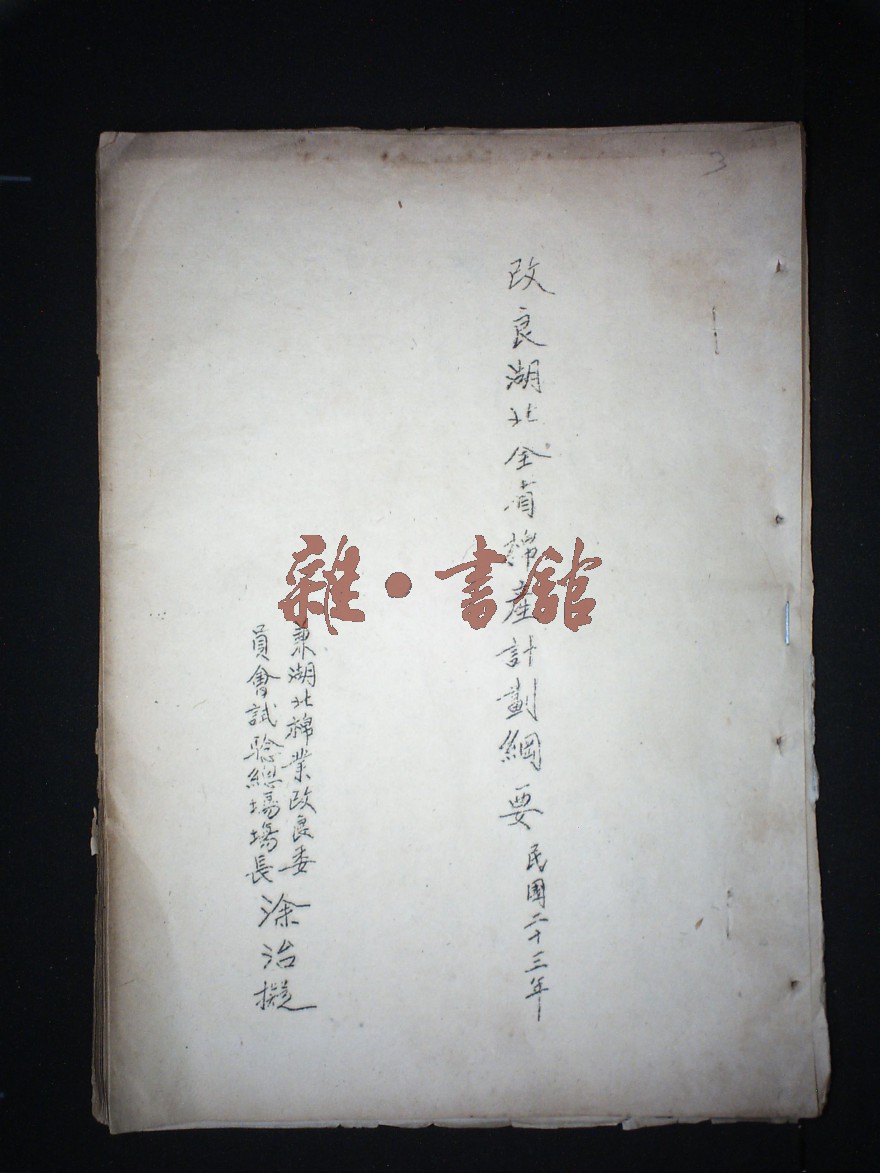 3
改良湖北全省棉產計劃綱要 民國二十三年
兼湖北棉業改良委
員會試驗總場場長 涂治擬
雜·書舘